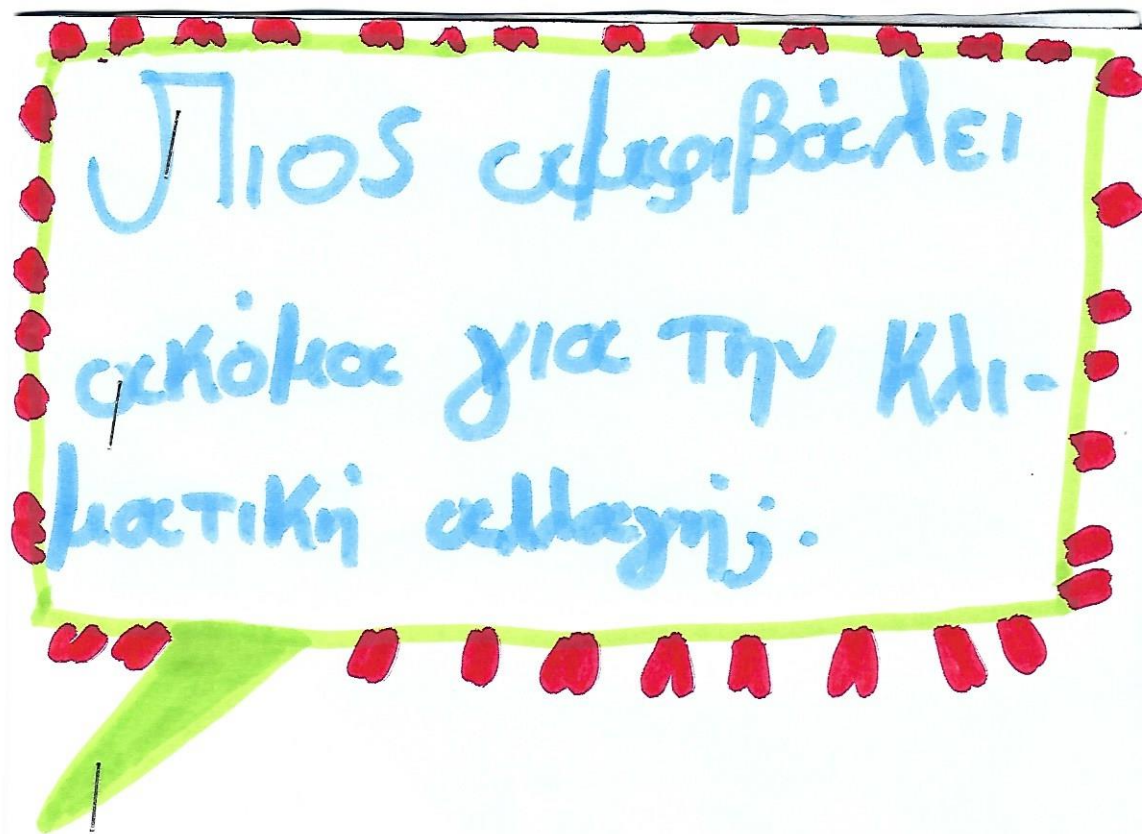 Πιος αμφιβάλει
ακόμα για την κλι-
ματική αλλαγή;.